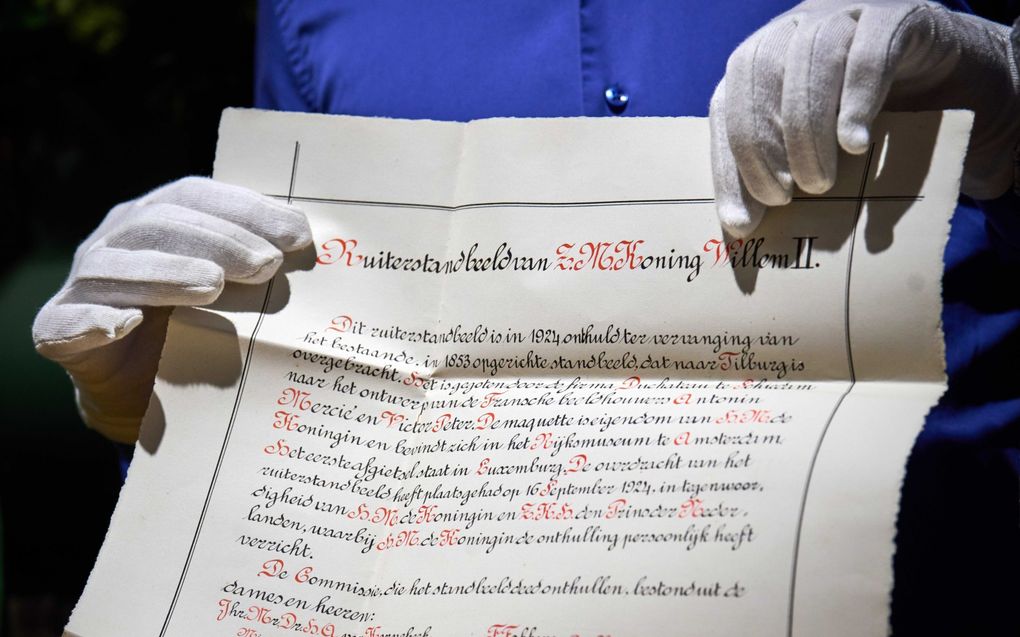 Ruiterstandbeeld van Z.M. Koning Willem II.
Dit ruiterstandbeeld is in 1924 onthuld ter vervanging van
het bestaande, in 1853 opgerichte standbeeld, dat naar Tilburg is
overgebracht. Het is gegoten door de firma Duchateau te Schiedam
naar het ontwerp van de Fransche beeldhouwers Antonin
Mercié en Victor Peter. De maquette is eigendom van H.M. de
Koningin en bevindt zich in het Rijksmuseum te Amsterdam.
Het eerste afgietsel staat in Luxemburg. De overdracht van het
ruiterstandbeeld heeft plaats gehad op 16 September 1924, in tegenwoor-
digheid van H.M. de Koningin en Z.K.H. den Prins der Neder-
landen, waarbij H.M. de Koningin de onthulling persoonlijk heeft
verricht.
De Commissie, die het standbeeld deed onthullen, bestond uit de
dames en heeren:
Jhr. Mr. Dr. H.A. van